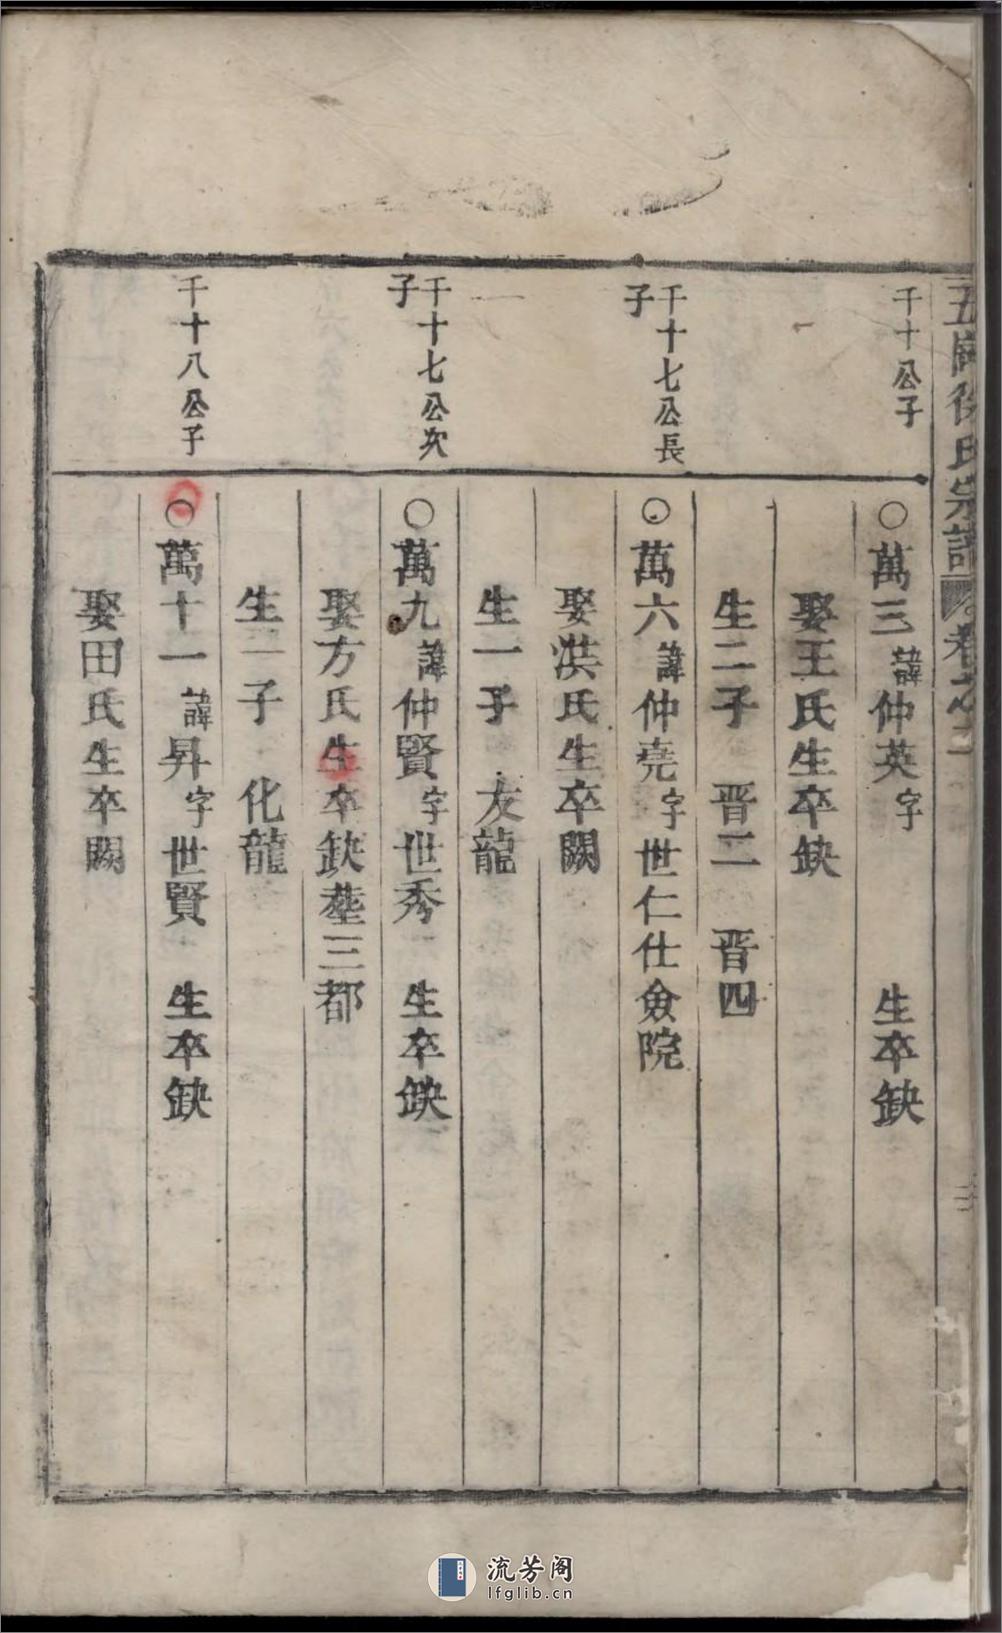 五
氏宗譜
卷之二
千十公子
○萬三諱仲英字 生卒缺
娶王氏生卒缺
生二子 晋二 晋四
千十七公長子
○萬六諱仲堯字世仁仕僉院
娶洪氏生卒闕
生一子 友龍
千十七公次子
○萬九諱仲賢字世秀 生卒缺
娶方氏生卒缺塟三都
生一子 化龍
千十八公子
○萬十一諱昇字世賢 生卒缺
娶田氏生卒闕
流芳阁
lfglib.cn